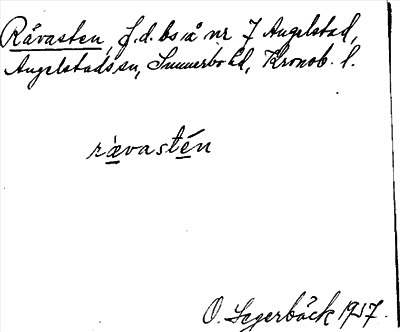 Råvasten, f.d. bs å nr 7 Angelstad,
Angelstads sn, Sunnerbo hd, Kronob. l.
rävastén
O. Lagerbäck 1937.